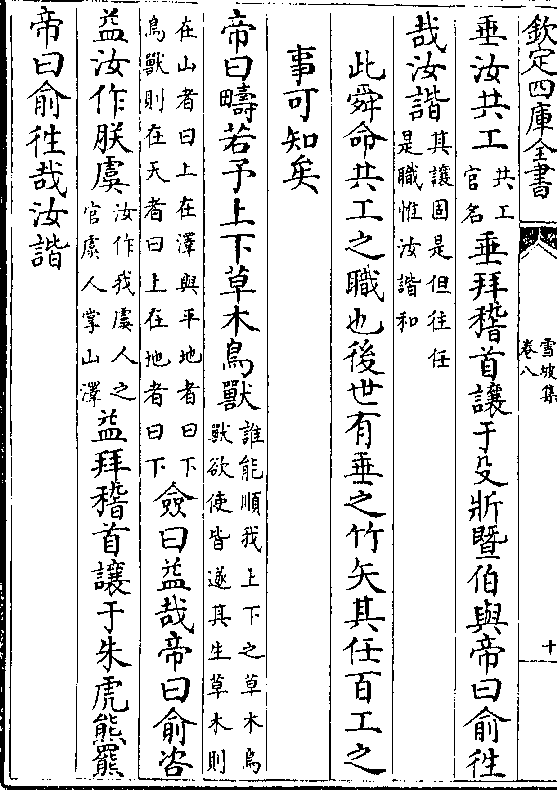 欽定四庫全書
雪坡集
卷八
十
垂汝共工共工官名垂拜稽首讓于殳斨暨伯與帝曰俞徃
哉汝諧其讓固是但往任是職惟汝諧和
此舜命共工之職也後世有垂之竹矢其任百工之
事可知矣
帝曰疇若予上下草木鳥獸誰能順我上下之草木鳥獸欲使皆遂其生草木則
在山者曰上在澤與平地者曰下鳥獸則在天者曰上在地者曰下僉曰益哉帝曰俞咨
益汝作朕虞汝作我虞人之官虞人掌山澤益拜稽首讓于朱虎熊羆
帝曰俞徃哉汝諧